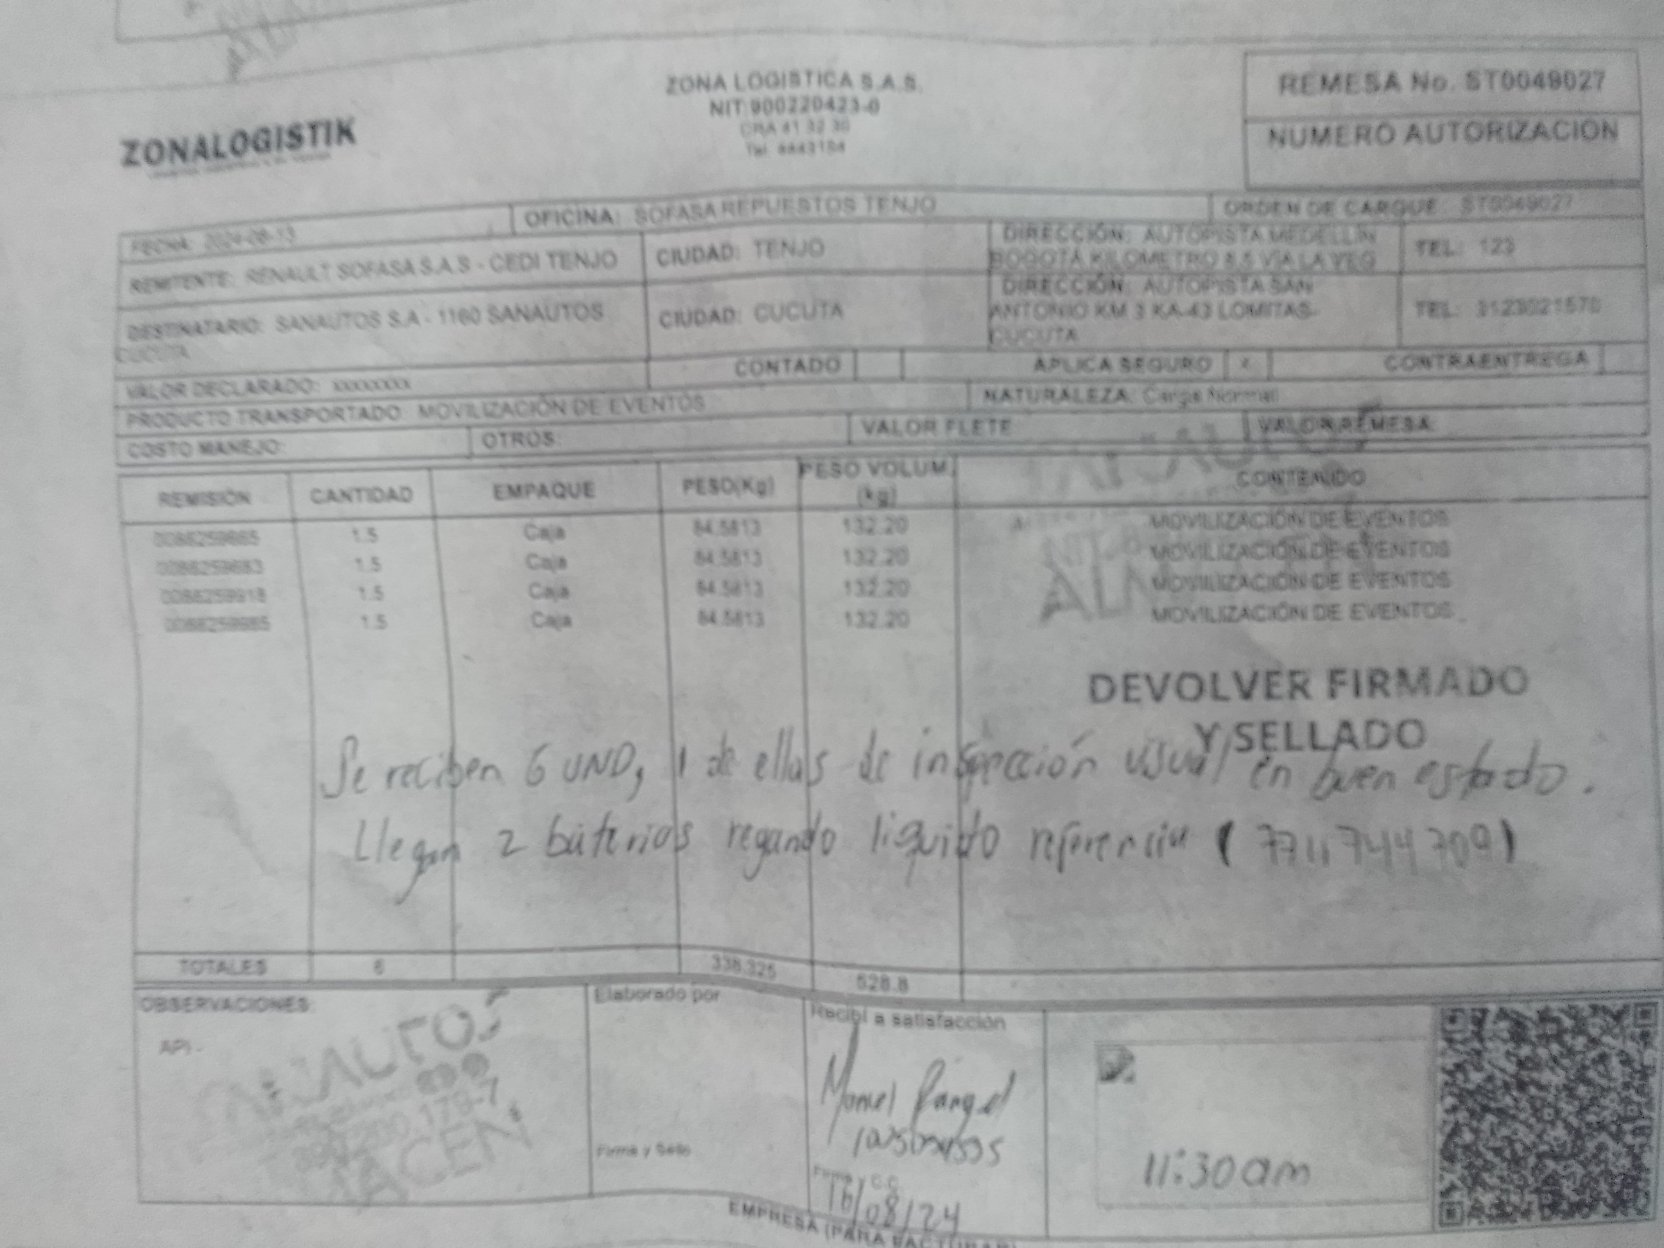 ZONA LOGISTICA S.A.S.
NIT:900220423-0
CRA 41 32 36
Tel. 4443184
ZONALOGISTIK
REMESA No. ST0049027
NUMERO AUTORIZACION
FECHA: 2024-08-13 OFICINA: SOFASA REPUESTOS TENJO ORDEN DE CARGUE: ST0049027
REMITENTE: RENAULT SOFASA S.A.S - CEDI TENJO CIUDAD: TENJO DIRECCIÓN: AUTOPISTA MEDELLIN BOGOTÁ KILOMETRO 8.5 VIA LA VEG TEL: 123
DESTINATARIO: SANAUTOS S.A - 1160 SANAUTOS CUCUTA CIUDAD: CUCUTA DIRECCIÓN: AUTOPISTA SAN ANTONIO KM 3 KA-43 LOMITAS-CUCUTA TEL: 3123021570
VALOR DECLARADO: xxxxxxxx CONTADO APLICA SEGURO x CONTRAENTREGA
PRODUCTO TRANSPORTADO MOVILIZACIÓN DE EVENTOS NATURALEZA: Carga Normal
COSTO MANEJO: OTROS: VALOR FLETE VALOR REMESA:
REMISIÓN CANTIDAD EMPAQUE PESO(Kg) PESO VOLUM. (kg) CONTENIDO
1.5 Caja 84.5813 132.20 MOVILIZACIÓN DE EVENTOS
1.5 Caja 84.5813 132.20 MOVILIZACIÓN DE EVENTOS
1.5 Caja 84.5813 132.20 MOVILIZACIÓN DE EVENTOS
1.5 Caja 84.5813 132.20 MOVILIZACIÓN DE EVENTOS
DEVOLVER FIRMADO
Y SELLADO
Se reciben 6 UND, 1 de ellas de inspección visual en buen estado.
Llegan 2 baterias regando liquido referencia (7711744709)
TOTALES 6 338.325 528.8
OBSERVACIONES: Elaborado por Recibí a satisfacción
API -
SANAUTOS
ALMACEN
Manuel Rangel
Firma y Sello
Firma y C.C.
16/08/24
11:30am
EMPRESA (PARA FACTURAR)